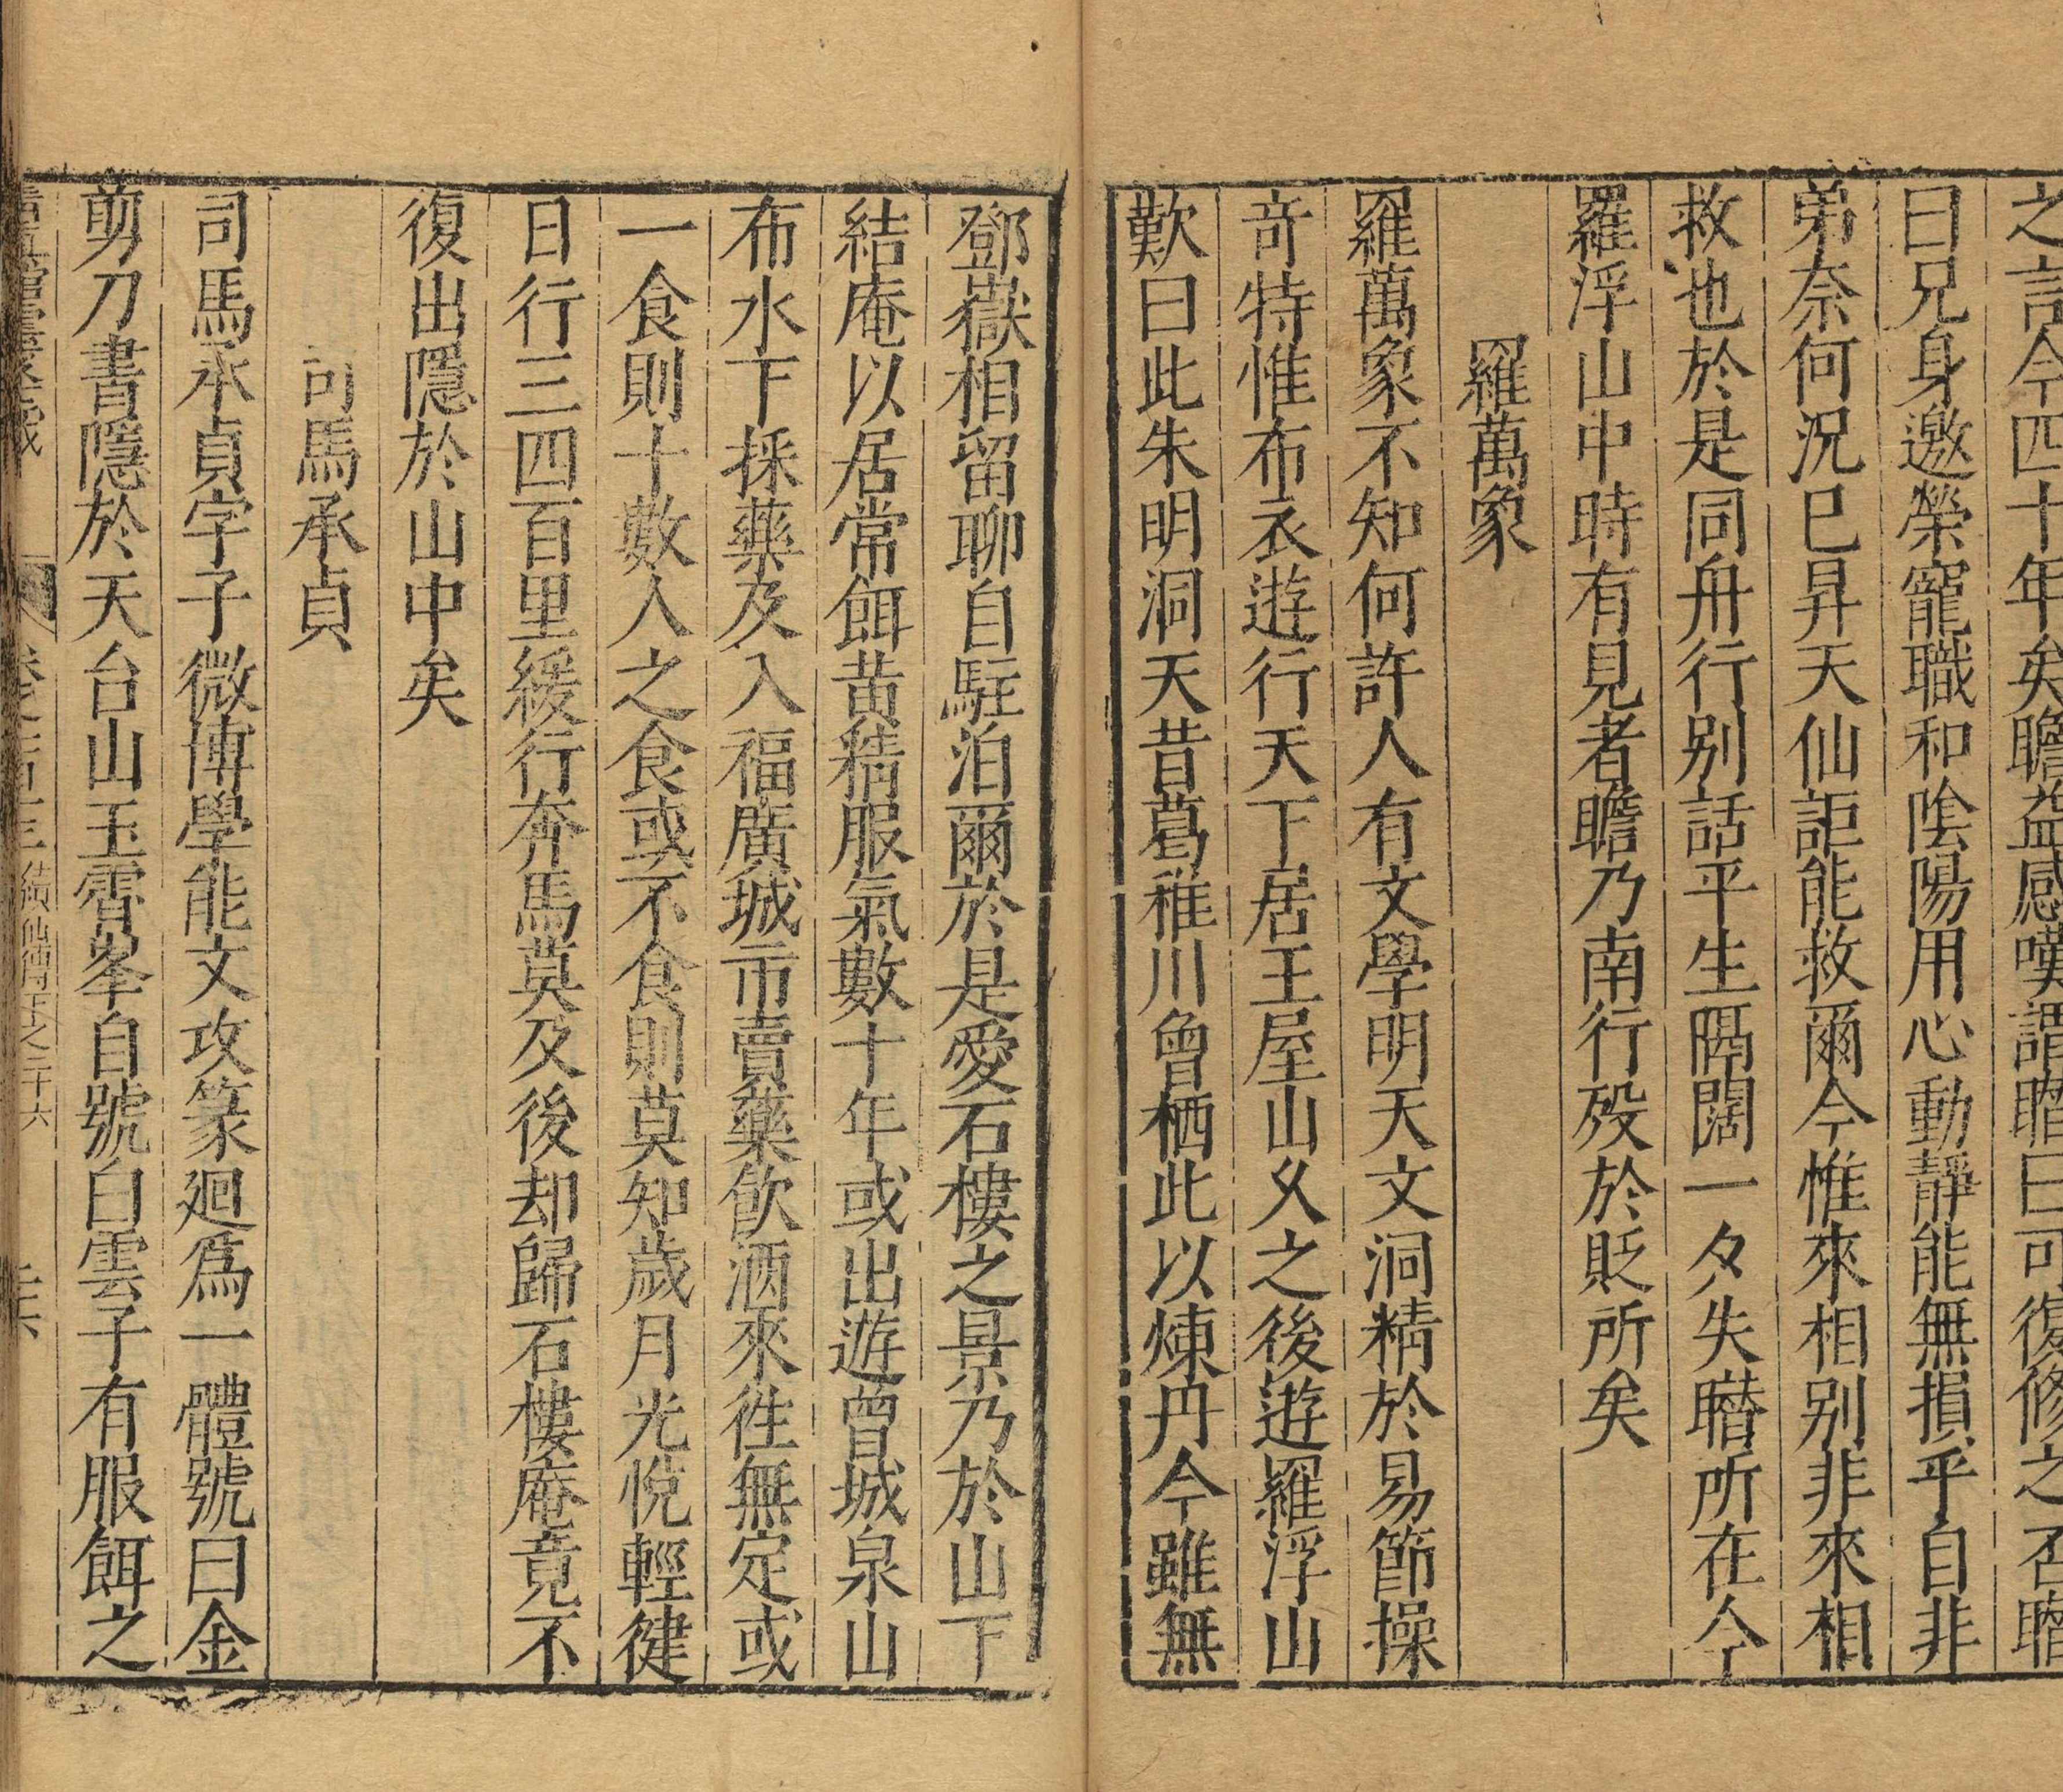 之言今四十年矣瞻益感嘆謂瞻曰可復修之否瞻
曰兄身邀榮寵職和陰陽用心動靜能無損乎自非
弟奈何況巳昇天仙詎能救爾今惟來相别非來相
救也於是同舟行别話平生隔闊一夕失瞻所在今
羅浮山中時有見者瞻乃南行殁於貶所矣
羅萬象
羅萬象不知何許人有文學明天文洞精於易節操
竒特惟布衣遊行天下居王屋山乆之後遊羅浮山
歎曰此朱明洞天昔葛稚川曾栖此以煉丹今雖無
鄧嶽相留聊自駐泊爾於是愛石樓之景乃於山下
結庵以居常餌黄精服氣數十年或出遊曾城泉山
布水下採藥及入福廣城市賣藥飲酒來徃無定或
一食則十數人之食或不食則莫知歲月光悅輕健
日行三四百里緩行奔馬莫及後却歸石樓庵竟不
復出隱於山中矣
司馬承貞
司馬承貞字子微博學能文攻篆迴爲一體號曰金
剪刀書隱於天台山玉霄峯自號白雲子有服餌之
卷之一百一十三 續仙傳 下之二十六